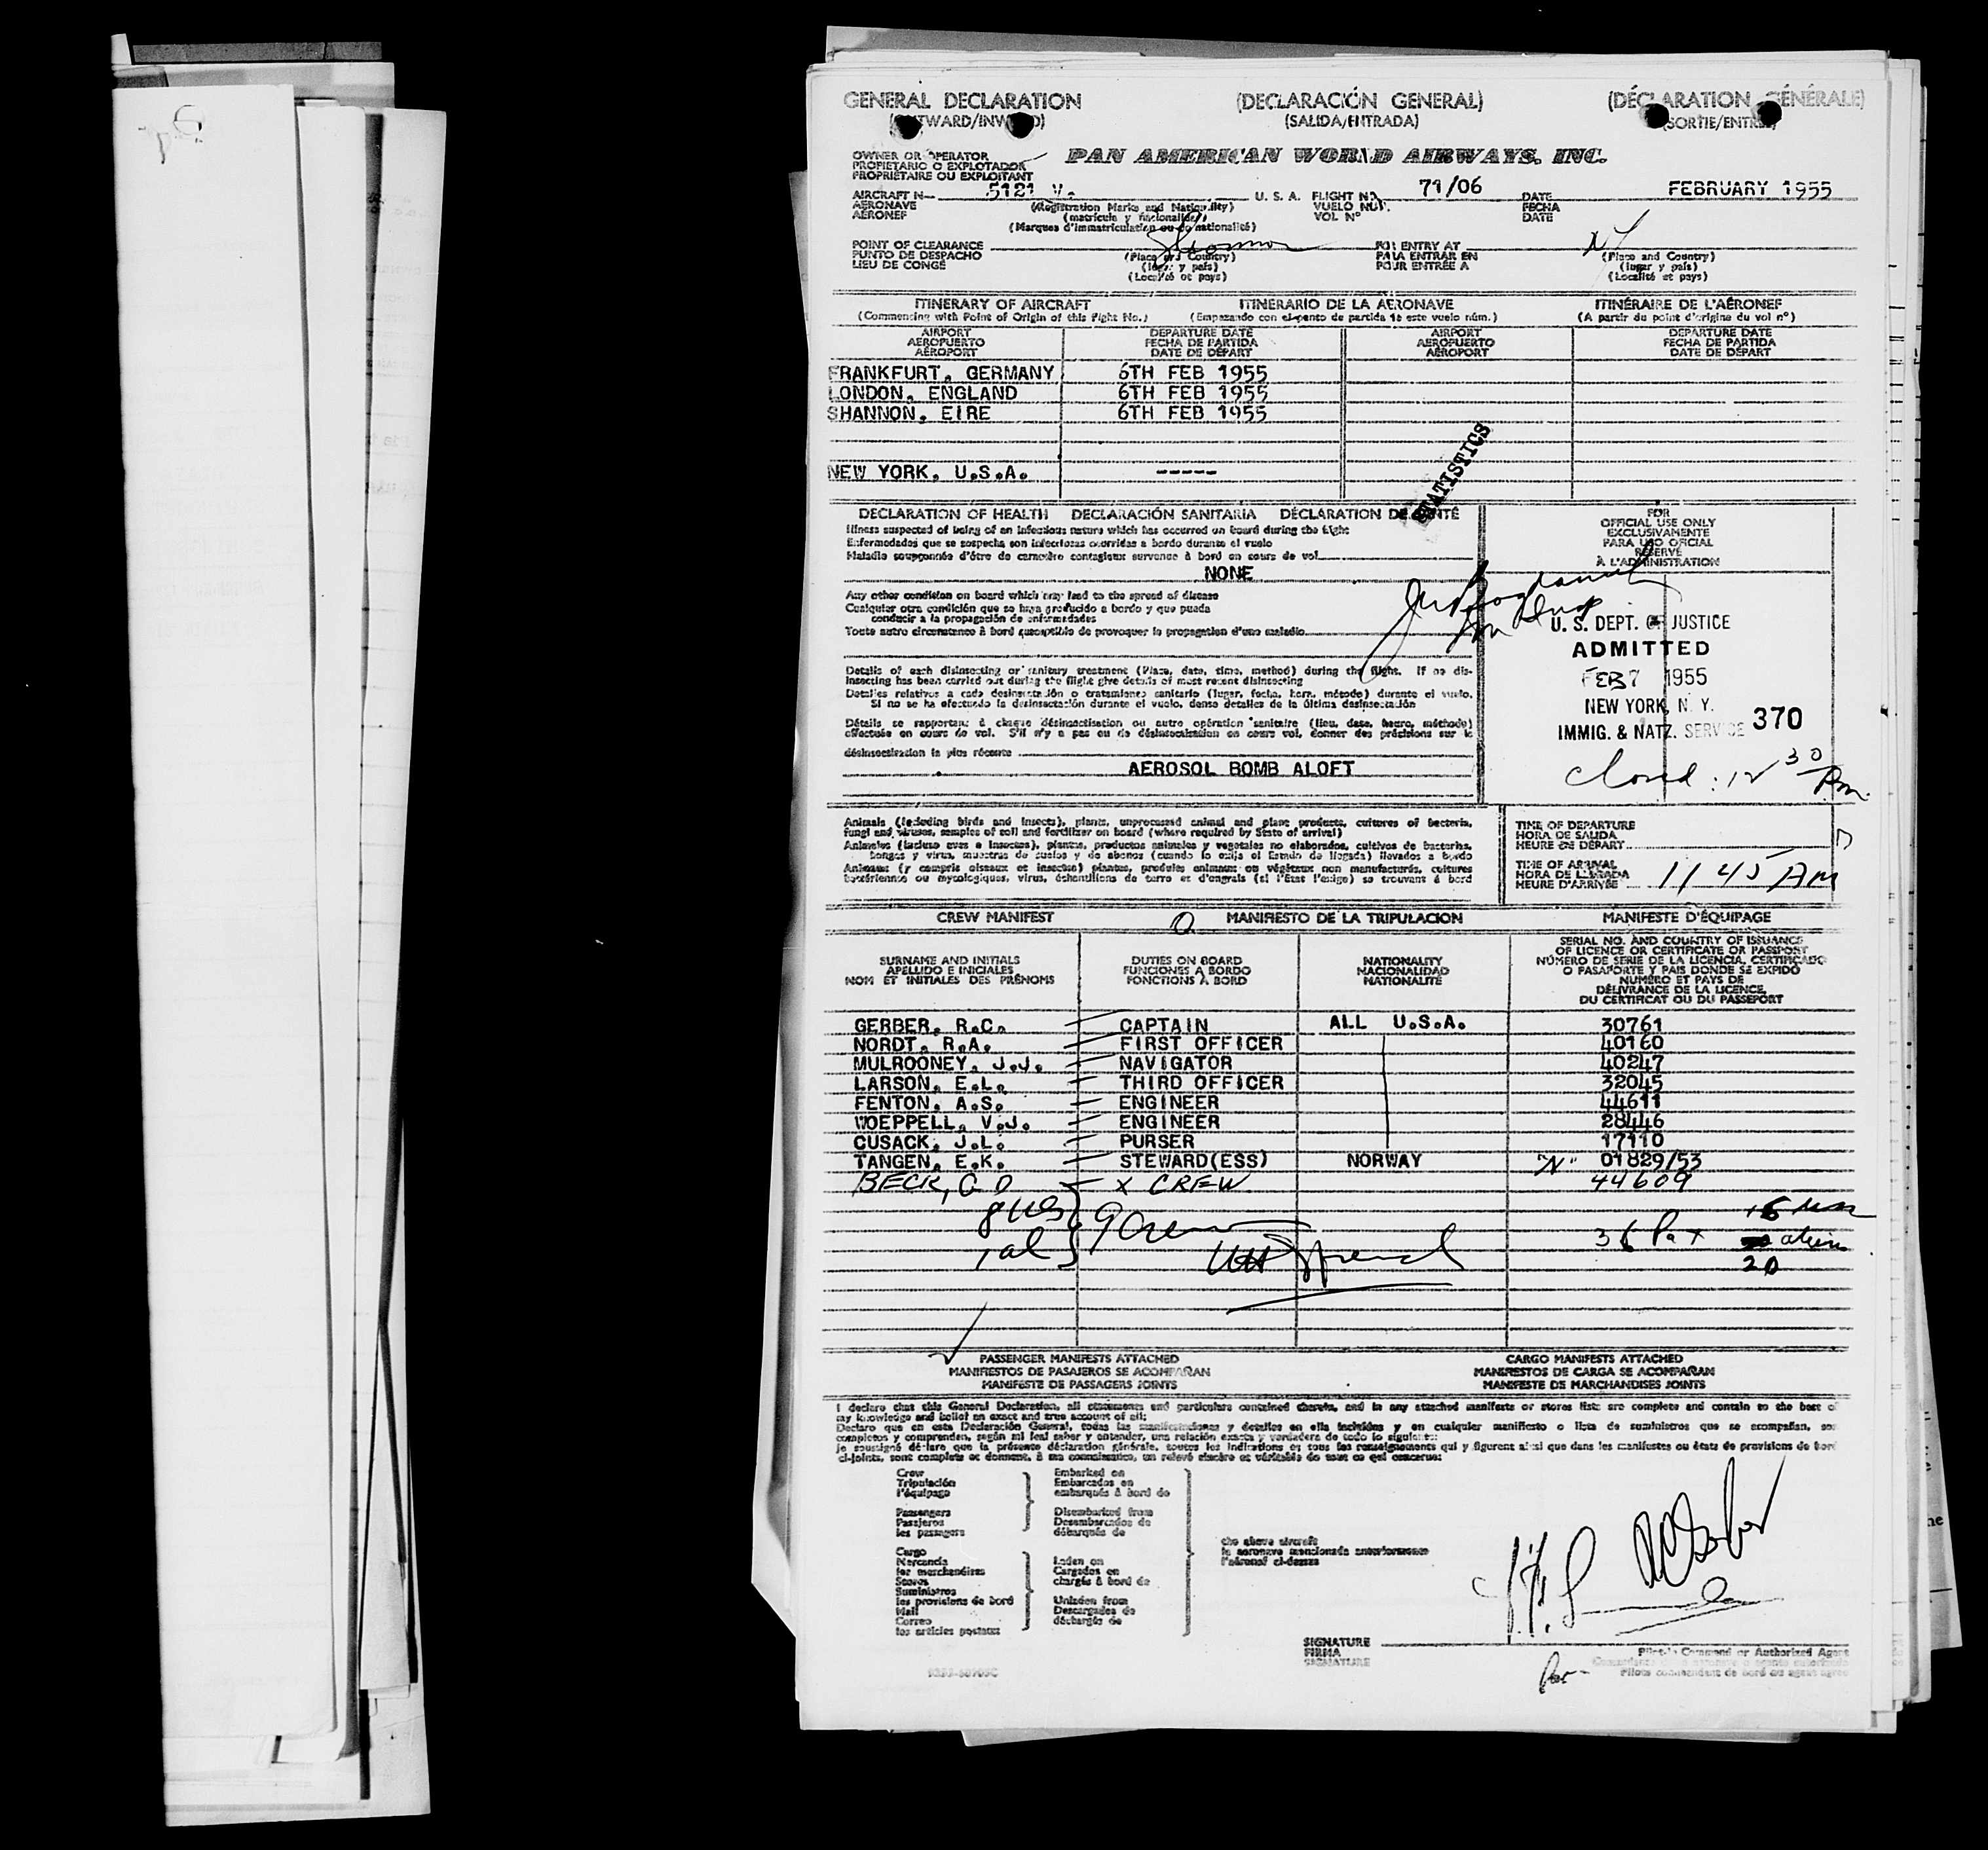 GENERAL DECLARATION (DECLARACIÓN GENERAL) (DÉCLARATION GÉNÉRALE)
(OUTWARD/INWARD) (SALIDA/ENTRADA) (SORTIE/ENTRÉE)
OWNER OR OPERATOR
PROPIETARIO O EXPLOTADOR
PROPRIÉTAIRE OU EXPLOITANT
PAN AMERICAN WORLD AIRWAYS, INC.
AIRCRAFT N 5121 V. U. S. A. FLIGHT No. 71/06 DATE FEBRUARY 1955
AERONAVE (Registration Marks and Nationality) VUELO NÚM. FECHA
AÉRONEF (matrícula y nacionalidad) VOL Nº DATE
(Marques d'immatriculation ou de nationalité)
POINT OF CLEARANCE Shannon FOR ENTRY AT NY
PUNTO DE DESPACHO (Place and Country) PARA ENTRAR EN (Place and Country)
LIEU DE CONGÉ (lugar y país) POUR ENTRÉE A (lugar y país)
(Localité et pays) (Localité et pays)
ITINERARY OF AIRCRAFT ITINERARIO DE LA AERONAVE ITINÉRAIRE DE L'AÉRONEF
(Commencing with Point of Origin of this Flight No.) (Empezando con el punto de partida de este vuelo núm.) (A partir du point d'origine du vol nº)
AIRPORT DEPARTURE DATE AIRPORT DEPARTURE DATE
AEROPUERTO FECHA DE PARTIDA AEROPUERTO FECHA DE PARTIDA
AÉROPORT DATE DE DÉPART AÉROPORT DATE DE DÉPART
FRANKFURT, GERMANY 6TH FEB 1955
LONDON, ENGLAND 6TH FEB 1955
SHANNON, EIRE 6TH FEB 1955
NEW YORK, U.S.A. -----
STATISTICS
DECLARATION OF HEALTH DECLARACIÓN SANITARIA DÉCLARATION DE SANTÉ
Illness suspected of being of an infectious nature which has occurred on board during the flight
Enfermedades que se sospecha son infecciosas ocurridas a bordo durante el vuelo
Maladie soupçonnée d'être de caractère contagieux survenue à bord en cours de vol
NONE
Any other condition on board which may lead to the spread of disease
Cualquier otra condición que se haya producido a bordo y que pueda
conducir a la propagación de enfermedades
Toute autre circonstance à bord susceptible de provoquer la propagation d'une maladie
Details of each disinsecting or sanitary treatment (Place, date, time, method) during the flight. If no dis-
insecting has been carried out during the flight give details of most recent disinsecting
Detalles relativos a cada desinsectación o tratamiento sanitario (lugar, fecha, hora, método) durante el vuelo.
Si no se ha efectuado la desinsectación durante el vuelo, dense detalles de la última desinsectación
Détails se rapportant à chaque désinsectisation ou autre opération sanitaire (lieu, date, heure, méthode)
effectuée en cours de vol. S'il n'y a pas eu de désinsectisation en cours vol, donner des précisions sur la
désinsectisation la plus récente
AEROSOL BOMB ALOFT
FOR
OFFICIAL USE ONLY
EXCLUSIVAMENTE
PARA USO OFICIAL
RÉSERVÉ
À L'ADMINISTRATION
U. S. DEPT. OF JUSTICE
ADMITTED
FEB 7 1955
NEW YORK, N. Y.
IMMIG. & NATZ. SERVICE 370
Closed: 12 30 Pm.
Animals (including birds and insects), plants, unprocessed animal and plant products, cultures of bacteria,
fungi and viruses, samples of soil and fertilizer on board (where required by State of arrival)
Animales (incluso aves e insectos), plantas, productos animales y vegetales no elaborados, cultivos de bacterias,
hongos y virus, muestras de suelos y de abonos (cuando lo exija el Estado de llegada) llevados a bordo
Animaux (y compris oiseaux et insectes) plantes, produits animaux ou végétaux non manufacturés, cultures
bactériennes ou mycologiques, virus, échantillons de terre et d'engrais (si l'État l'exige) se trouvant à bord
TIME OF DEPARTURE
HORA DE SALIDA
HEURE DE DÉPART
TIME OF ARRIVAL
HORA DE LLEGADA
HEURE D'ARRIVÉE 11 45 AM
CREW MANIFEST MANIFIESTO DE LA TRIPULACION MANIFESTE D'ÉQUIPAGE
SURNAME AND INITIALS
APELLIDO E INICIALES
NOM ET INITIALES DES PRÉNOMS
DUTIES ON BOARD
FUNCIONES A BORDO
FONCTIONS À BORD
NATIONALITY
NACIONALIDAD
NATIONALITÉ
SERIAL NO. AND COUNTRY OF ISSUANCE
OF LICENCE OR CERTIFICATE OR PASSPORT
NÚMERO DE SERIE DE LA LICENCIA, CERTIFICADO
O PASAPORTE Y PAIS DONDE SE EXPIDÓ
NUMÉRO ET PAYS DE
DÉLIVRANCE DE LA LICENCE,
DU CERTIFICAT OU DU PASSEPORT
GERBER, R.C. CAPTAIN ALL U.S.A. 30761
NORDT, R.A. FIRST OFFICER 40160
MULROONEY, J.J. NAVIGATOR 40247
LARSON, E.L. THIRD OFFICER 32045
FENTON, A.S. ENGINEER 44611
WOEPPELL, V.J. ENGINEER 28446
CUSACK, J.L. PURSER 17110
TANGEN, E.K. STEWARD(ESS) NORWAY "N" 01829/53
BECK, G D X CREW 44609
8 US
1 al 9 Crew
36 Pax 16 usc
aliens
20
PASSENGER MANIFESTS ATTACHED CARGO MANIFESTS ATTACHED
MANIFIESTOS DE PASAJEROS SE ACOMPAÑAN MANIFIESTOS DE CARGA SE ACOMPAÑAN
MANIFESTE DE PASSAGERS JOINTS MANIFESTE DE MARCHANDISES JOINTS
I declare that this General Declaration, all statements and particulars contained therein, and in any attached manifests or stores lists are complete and contain to the best of
my knowledge and belief an exact and true account of all:
Declaro que en esta Declaración General, todas las manifestaciones y detalles en ella incluidos y en cualquier manifiesto o lista de suministros que se acompañan, son
completos y comprenden, según mi leal saber y entender, una relación exacta y verdadera de todo lo siguiente:
Je soussigné déclare que la présente déclaration générale, toutes les indications et tous les renseignements qui y figurent ainsi que dans les manifestes ou états de provisions de bord
ci-joints, sont complets et donnent, à ma connaissance, un relevé sincère et véritable de tout ce qui concerne:
Crew
Tripulación
l'équipage
Passengers
Pasajeros
les passagers
Cargo
Mercancía
les marchandises
Stores
Suministros
les provisions de bord
Mail
Correo
les articles postaux
Embarked on
Embarcados en
embarqués à bord de
Disembarked from
Desembarcados de
débarqués de
Laden on
Cargados en
chargés à bord de
Unladen from
Descargados de
déchargés de
the above aircraft
la aeronave mencionada anteriormente
l'aéronef ci-dessus
SIGNATURE
FIRMA
SIGNATURE
Pilot in Command or Authorized Agent
Pilote commandant de bord ou agent agréé